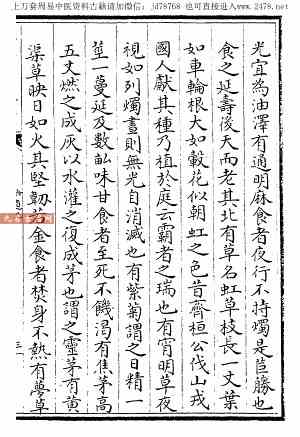 上万套周易中医资料古籍请加微信：jd78768 也可直接进入www.2478.net
光宜為油澤有通明麻食者夜行不持燭是苣蕂也
食之延壽後天而老其北有草名虹草枝長一丈葉
如車輪根大如轂花似朝虹之色昔齊桓公伐山戎
國人獻其種乃植於庭云霸者之瑞也有宵明草夜
視如列燭晝則無光自消滅也有紫菊謂之日精一
莖一蔓延及數畝味甘食者至死不饑渴有焦茅高
五丈燃之成灰以水灌之復成茅也謂之靈茅有黄
渠草映日如火其堅韌若金食者焚身不熱有夢草